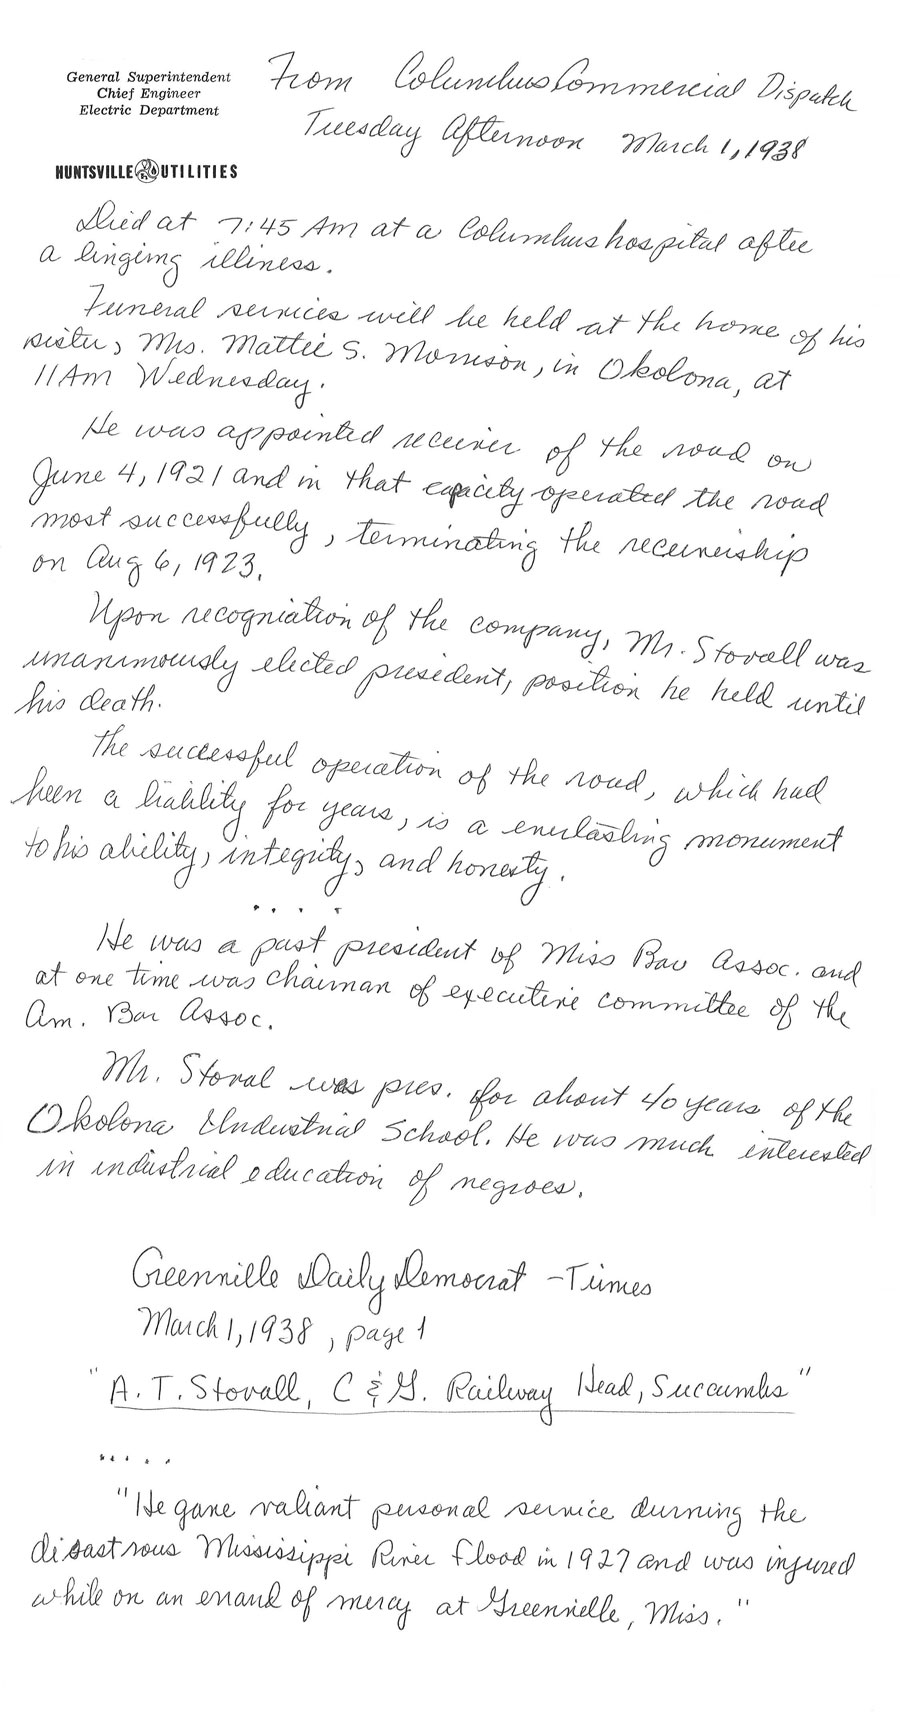 General Superintendent
Chief Engineer
Electric Department
HUNTSVILLE UTILITIES
From Columbus Commercial Dispatch
Tuesday Afternoon March 1, 1938
Died at 7:45 Am at a Columbus hospital after
a lingimg illiness.
Funeral services will be held at the home of his
sister, Mrs. Mattie S. Morrison, in Okolona, at
11 Am Wednesday.
He was appointed receiver of the road on
June 4, 1921 and in that capacity operated the road
most successfully, terminating the receivership
on Aug 6, 1923.
Upon recogniation of the company, Mr. Stovall was
unanimously elected president, position he held until
his death.
The successful operation of the road, which had
been a liability for years, is a everlasting monument
to his ability, integrity, and honesty.
. . . .
He was a past president of Miss Bar Assoc. and
at one time was chairman of executive committee of the
Am. Bar Assoc.
Mr. Stoval was pres. for about 40 years of the
Okolona Industrial School. He was much interested
in industrial education of negroes.
Greenville Daily Democrat - Times
March 1, 1938, page 1
"A. T. Stovall, C & G. Railway Head, Succumbs"
. . . . .
"He gave valiant personal service durning the
disastrous Mississippi River flood in 1927 and was injured
while on an errand of mercy at Greenville, Miss."